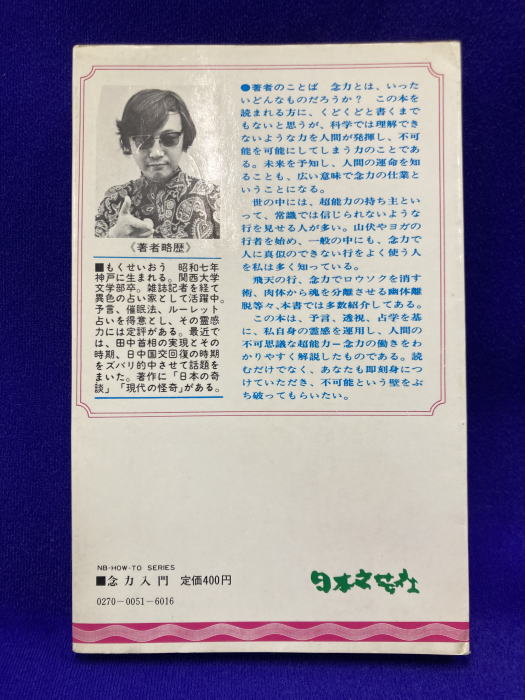 《著者略歴》
■もくせいおう　昭和七年
神戸に生まれる。関西大学
文学部卒。雑誌記者を経て
異色の占い家として活躍中。
予言、催眠法、ルーレット
占いを得意とし、その霊感
力には定評がある。最近で
は、田中首相の実現とその
時期、日中国交回復の時期
をズバリ的中させて話題を
まいた。著作に「日本の奇
談」「現代の怪奇」がある。
●著者のことば　念力とは、いった
いどんなものだろうか？　この本を
読まれる方に、くどくどと書くまで
もないと思うが、科学では理解でき
ないような力を人間が発揮し、不可
能を可能にしてしまう力のことであ
る。未来を予知し、人間の運命を知
ることも、広い意味で念力の仕業と
いうことになる。
　世の中には、超能力の持ち主とい
って、常識では信じられないような
行を見せる人が多い。山伏やヨガの
行者を始め、一般の中にも、念力で
人に真似のできない行をよく使う人
を私は多く知っている。
　飛天の行、念力でロウソクを消す
術、肉体から魂を分離させる幽体離
脱等々、本書では多数紹介してある。
　この本は、予言、透視、占学を基
に、私自身の霊感を運用し、人間の
不可思議な超能力ー念力の働きをわ
かりやすく解説したものである。読
むだけでなく、あなたも即刻身につ
けていただき、不可能という壁をぶ
ち破ってもらいたい。
NB-HOW-TO SERIES
■念力入門　定価400円
0270-0051-6016
日本文芸社